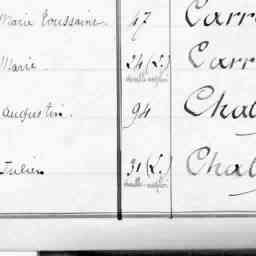 Marie Toussaine. 17 Carr
Marie. 24 (L.) Carr
Augustin. 94 Chal
Julien 31 (L.) Chal